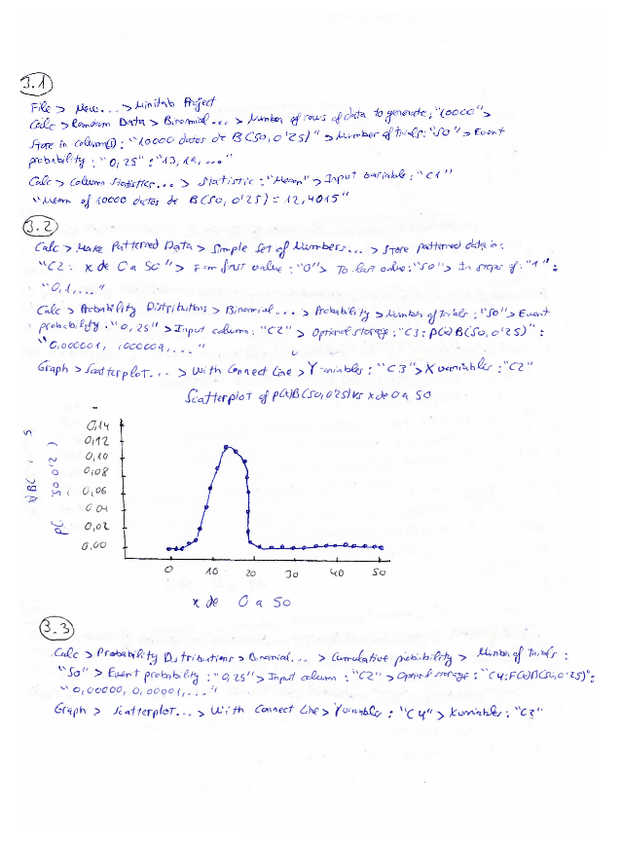 3.1
File > New... > Minitab Project
Calc > Random Data > Binomial... > Number of rows of data to generate: "10000" >
Store in column(s): "10000 datos de B(50, 0'25)" > Number of trials: "50" > Event
probability: "0,25": "13, 14, ..."
Calc > Column Statistics... > Statistic: "Mean" > Input variable: "C1"
"Mean of 10000 datos de B(50, 0'25) = 12,4015"
3.2
Calc > Make Patterned Data > Simple Set of Numbers... > Store patterned data in:
"C2: x de 0 a 50" > From first value: "0" > To last value: "50" > In steps of: "1":
"0,1,..."
Calc > Probability Distributions > Binomial... > Probability > Number of Trials: "50" > Event
probability: "0,25" > Input column: "C2" > Optional storage: "C3: p(x) B(50, 0'25)":
"0,000001, 000009,..."
Graph > Scatterplot... > With Connect Line > Y variables: "C3" > X variables: "C2"
Scatterplot of p(x)B(50,025) vs x de 0 a 50
0,14
0,12
0,10
0,08
0,06
0,04
0,02
0,00
0 10 20 30 40 50
x de 0 a 50
3.3
Calc > Probability Distributions > Binomial... > Cumulative probability > Number of Trials:
"50" > Event probability: "0,25" > Input column: "C2" > Optional storage: "C4: F(x)B(50,0'25)":
"0,00000, 0,00001,..."
Graph > Scatterplot... > With Connect Line > Y variables: "C4" > X variables: "C3"